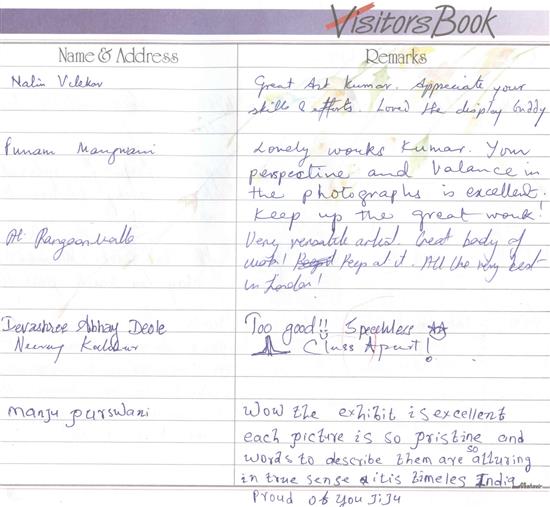 Visitors Book
Name & Address
Remarks
Nalin Velekar
Great Art Kumar. Appreciate your
skills & efforts. Loved the display buddy
Punam Mangwani
Lovely works Kumar. Your
perspective and valance in
the photographs is excellent.
Keep up the great work!
Ali Rangoonwalla
Very versatile artist. Great body of
work! Keep at it. All the very best
in London!
Devashree Abhay Deole
Neeraj
Too good!! Speechless
Class Apart!
manju purswani
Wow the exhibit is excellent
each picture is so pristine and
words to describe them are so alluring
in true sense it is timeles India
Proud of you JiJu